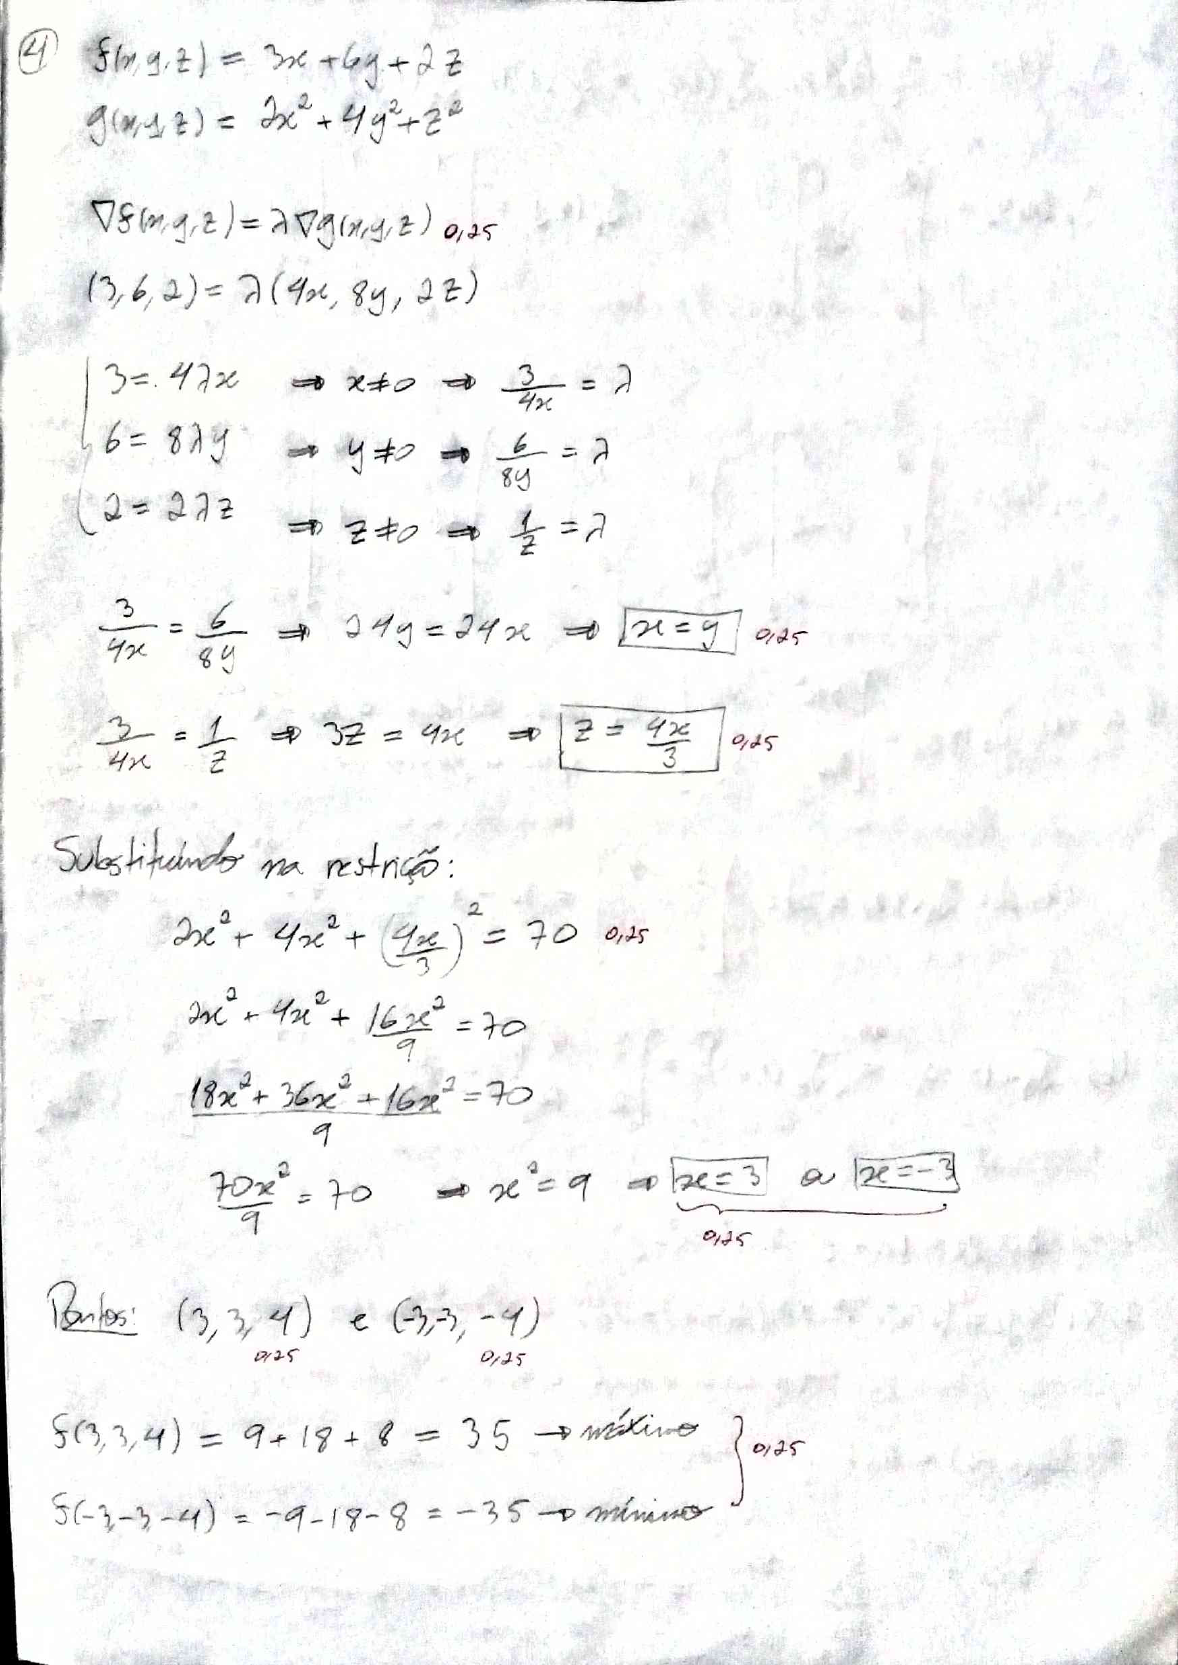 4 f(x,y,z) = 3x + 6y + 2z
g(x,y,z) = 2x² + 4y² + z²
∇f(x,y,z) = λ∇g(x,y,z) 0,25
(3,6,2) = λ(4x, 8y, 2z)
3 = 4λx ⇒ x≠0 ⇒ 3/4x = λ
6 = 8λy ⇒ y≠0 ⇒ 6/8y = λ
2 = 2λz ⇒ z≠0 ⇒ 1/z = λ
3/4x = 6/8y ⇒ 24y = 24x ⇒ x = y 0,25
3/4x = 1/z ⇒ 3z = 4x ⇒ z = 4x/3 0,25
Substituindo na restrição:
2x² + 4x² + (4x/3)² = 70 0,25
2x² + 4x² + 16x²/9 = 70
(18x² + 36x² + 16x²)/9 = 70
70x²/9 = 70 ⇒ x² = 9 ⇒ x = 3 ou x = -3
0,25
Pontos: (3,3,4) e (-3,-3,-4)
0,25 0,25
f(3,3,4) = 9 + 18 + 8 = 35 → máximo
0,25
f(-3,-3,-4) = -9-18-8 = -35 → mínimo